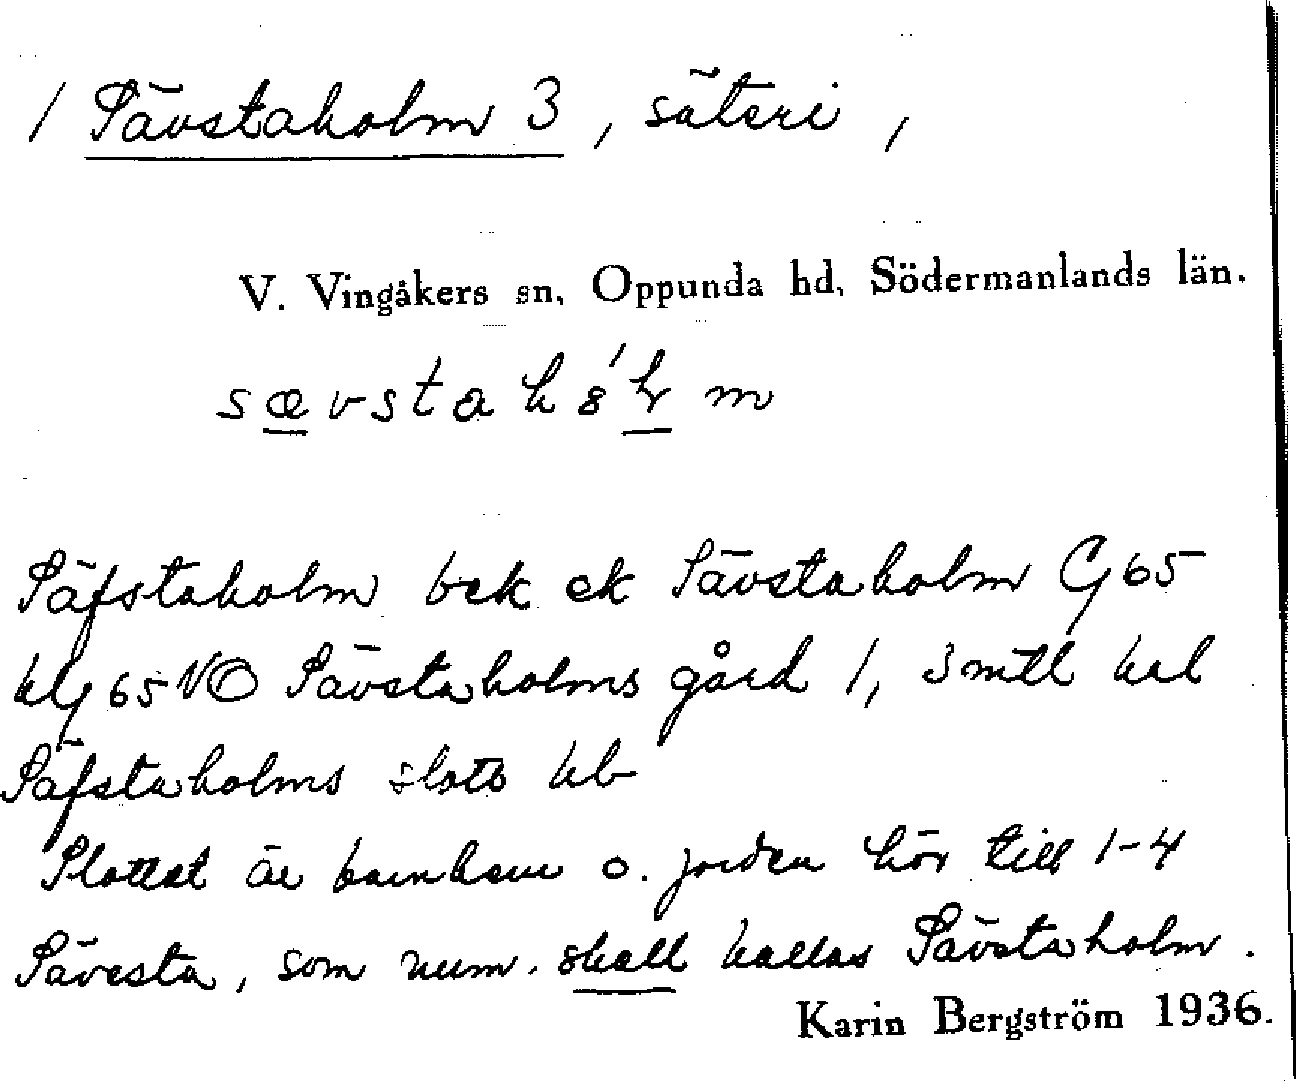 / Sävstaholm 3, säteri,
V. Vingåkers sn, Oppunda hd, Södermanlands län.
sævstah
Säfstaholm bek ek Sävstaholm G 65
hg 65 NO Sävstaholms gård 1, 3 mtl hal
Säfstaholms slott kb
Slottet är barnhem o. jorden hör till 1-4
Sävesta, som num. skall kallas Sävstaholm.
Karin Bergström 1936.